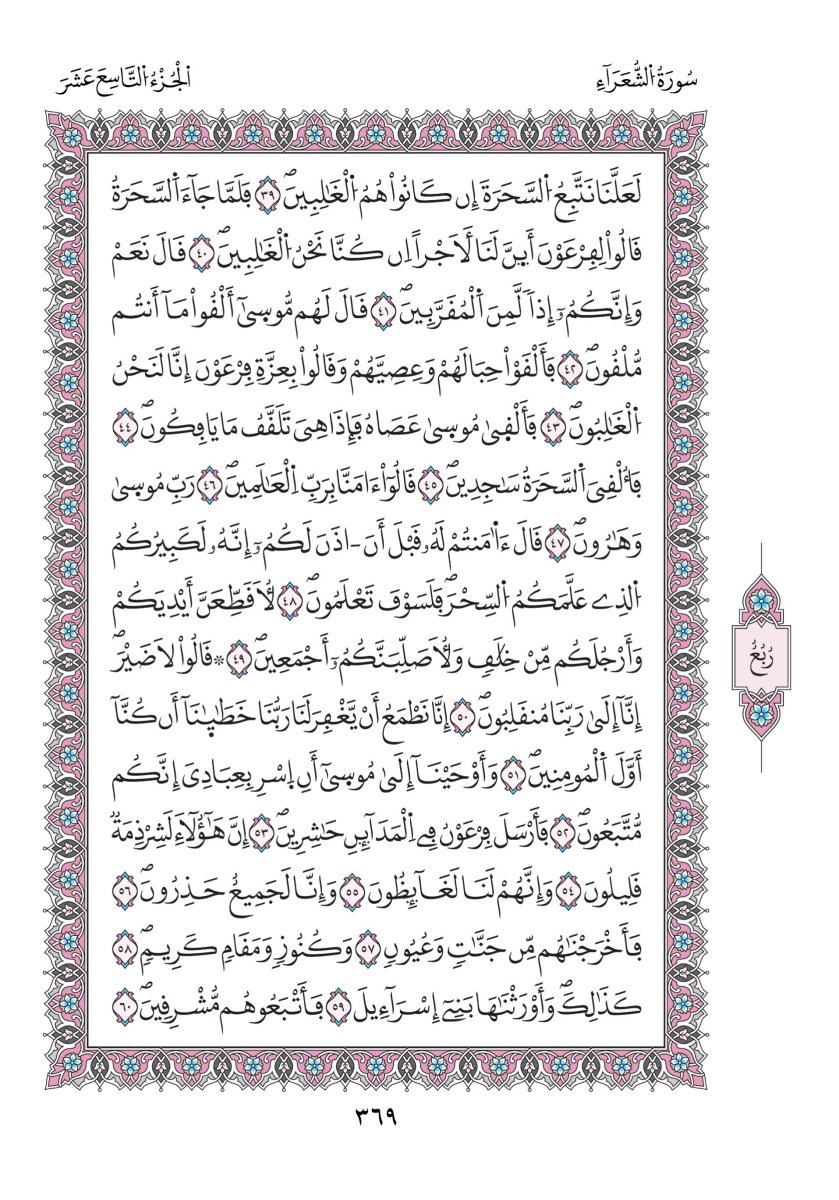 سُورَةُ الشُّعَرَآءِ
الْجُزْءُ التَّاسِعَ عَشَرَ
لَعَلَّنَا نَتَّبِعُ اُ۬لسَّحَرَةَ إِن كَانُواْ هُمُ اُ۬لْغَٰلِبِينَۖ ٣٩ فَلَمَّا جَآءَ اَ۬لسَّحَرَةُ
قَالُواْ لِفِرْعَوْنَ أَيِنَّ لَنَا لَأَجْراً اِن كُنَّا نَحْنُ اُ۬لْغَٰلِبِينَۖ ٤٠ قَالَ نَعَمْ
وَإِنَّكُمُۥٓ إِذاٗ لَّمِنَ اَ۬لْمُقَرَّبِينَۖ ٤١ قَالَ لَهُم مُّوس۪يٰٓ أَلْقُواْ مَآ أَنتُم
مُّلْقُونَۖ ٤٢ فَأَلْقَوْاْ حِبَالَهُمْ وَعِصِيَّهُمْ وَقَالُواْ بِعِزَّةِ فِرْعَوْنَ إِنَّا لَنَحْنُ
اُ۬لْغَٰلِبُونَۖ ٤٣ فَأَلْق۪يٰ مُوس۪يٰ عَصَاهُ فَإِذَا هِيَ تَلَقَّفُ مَا يَافِكُونَۖ ٤٤
فَأُلْقِيَ اَ۬لسَّحَرَةُ سَٰجِدِينَۖ ٤٥ قَالُوٓاْ ءَامَنَّا بِرَبِّ اِ۬لْعَٰلَمِينَۖ ٤٦ رَبِّ مُوس۪يٰ
وَهَٰرُونَۖ ٤٧ قَالَ ءَاٰ۬مَنتُمْ لَهُۥ قَبْلَ أَنَ اٰذَنَ لَكُمُۥٓ إِنَّهُۥ لَكَبِيرُكُمُ
اُ۬لذِے عَلَّمَكُمُ اُ۬لسِّحْرَۖ فَلَسَوْفَ تَعْلَمُونَۖ ٤٨ لَأُقَطِّعَنَّ أَيْدِيَكُمْ
وَأَرْجُلَكُم مِّنْ خِلَٰفٖ وَلَأُصَلِّبَنَّكُمُۥٓ أَجْمَعِينَۖ ٤٩ ۞ قَالُواْ لَا ضَيْرَۖ
إِنَّآ إِلَيٰ رَبِّنَا مُنقَلِبُونَۖ ٥٠ إِنَّا نَطْمَعُ أَنْ يَّغْفِرَ لَنَا رَبُّنَا خَطَٰيٰ۪نَآ أَن كُنَّآ
أَوَّلَ اَ۬لْمُومِنِينَۖ ٥١ وَأَوْحَيْنَآ إِلَيٰ مُوس۪يٰٓ أَنِ اِ۪سْرِ بِعِبَادِيَ إِنَّكُم
مُّتَّبَعُونَۖ ٥٢ فَأَرْسَلَ فِرْعَوْنُ فِے اِ۬لْمَدَآئِنِ حَٰشِرِينَۖ ٥٣ إِنَّ هَٰٓؤُلَآءِ لَشِرْذِمَةٞ
قَلِيلُونَ ٥٤ وَإِنَّهُمْ لَنَا لَغَآئِظُونَ ٥٥ وَإِنَّا لَجَمِيعٌ حَذِرُونَۖ ٥٦
فَأَخْرَجْنَٰهُم مِّن جَنَّٰتٖ وَعُيُونٖ ٥٧ وَكُنُوزٖ وَمَقَامٖ كَرِيمٖۖ ٥٨
كَذَٰلِكَۖ وَأَوْرَثْنَٰهَا بَنِےٓ إِسْرَآءِيلَۖ ٥٩ فَأَتْبَعُوهُم مُّشْرِقِينَۖ ٦٠
رُبُعُ
٣٦٩